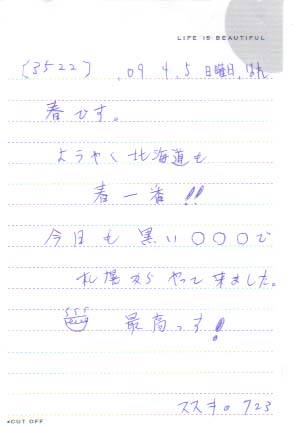 LIFE IS BEAUTIFUL
(3522) .09 4.5 日曜日.はれ
春です。
ようやく北海道も
春一番!!
今日も黒い○○○で
札幌からやって来ました。
最高っす!
ススキの 723
CUT OFF